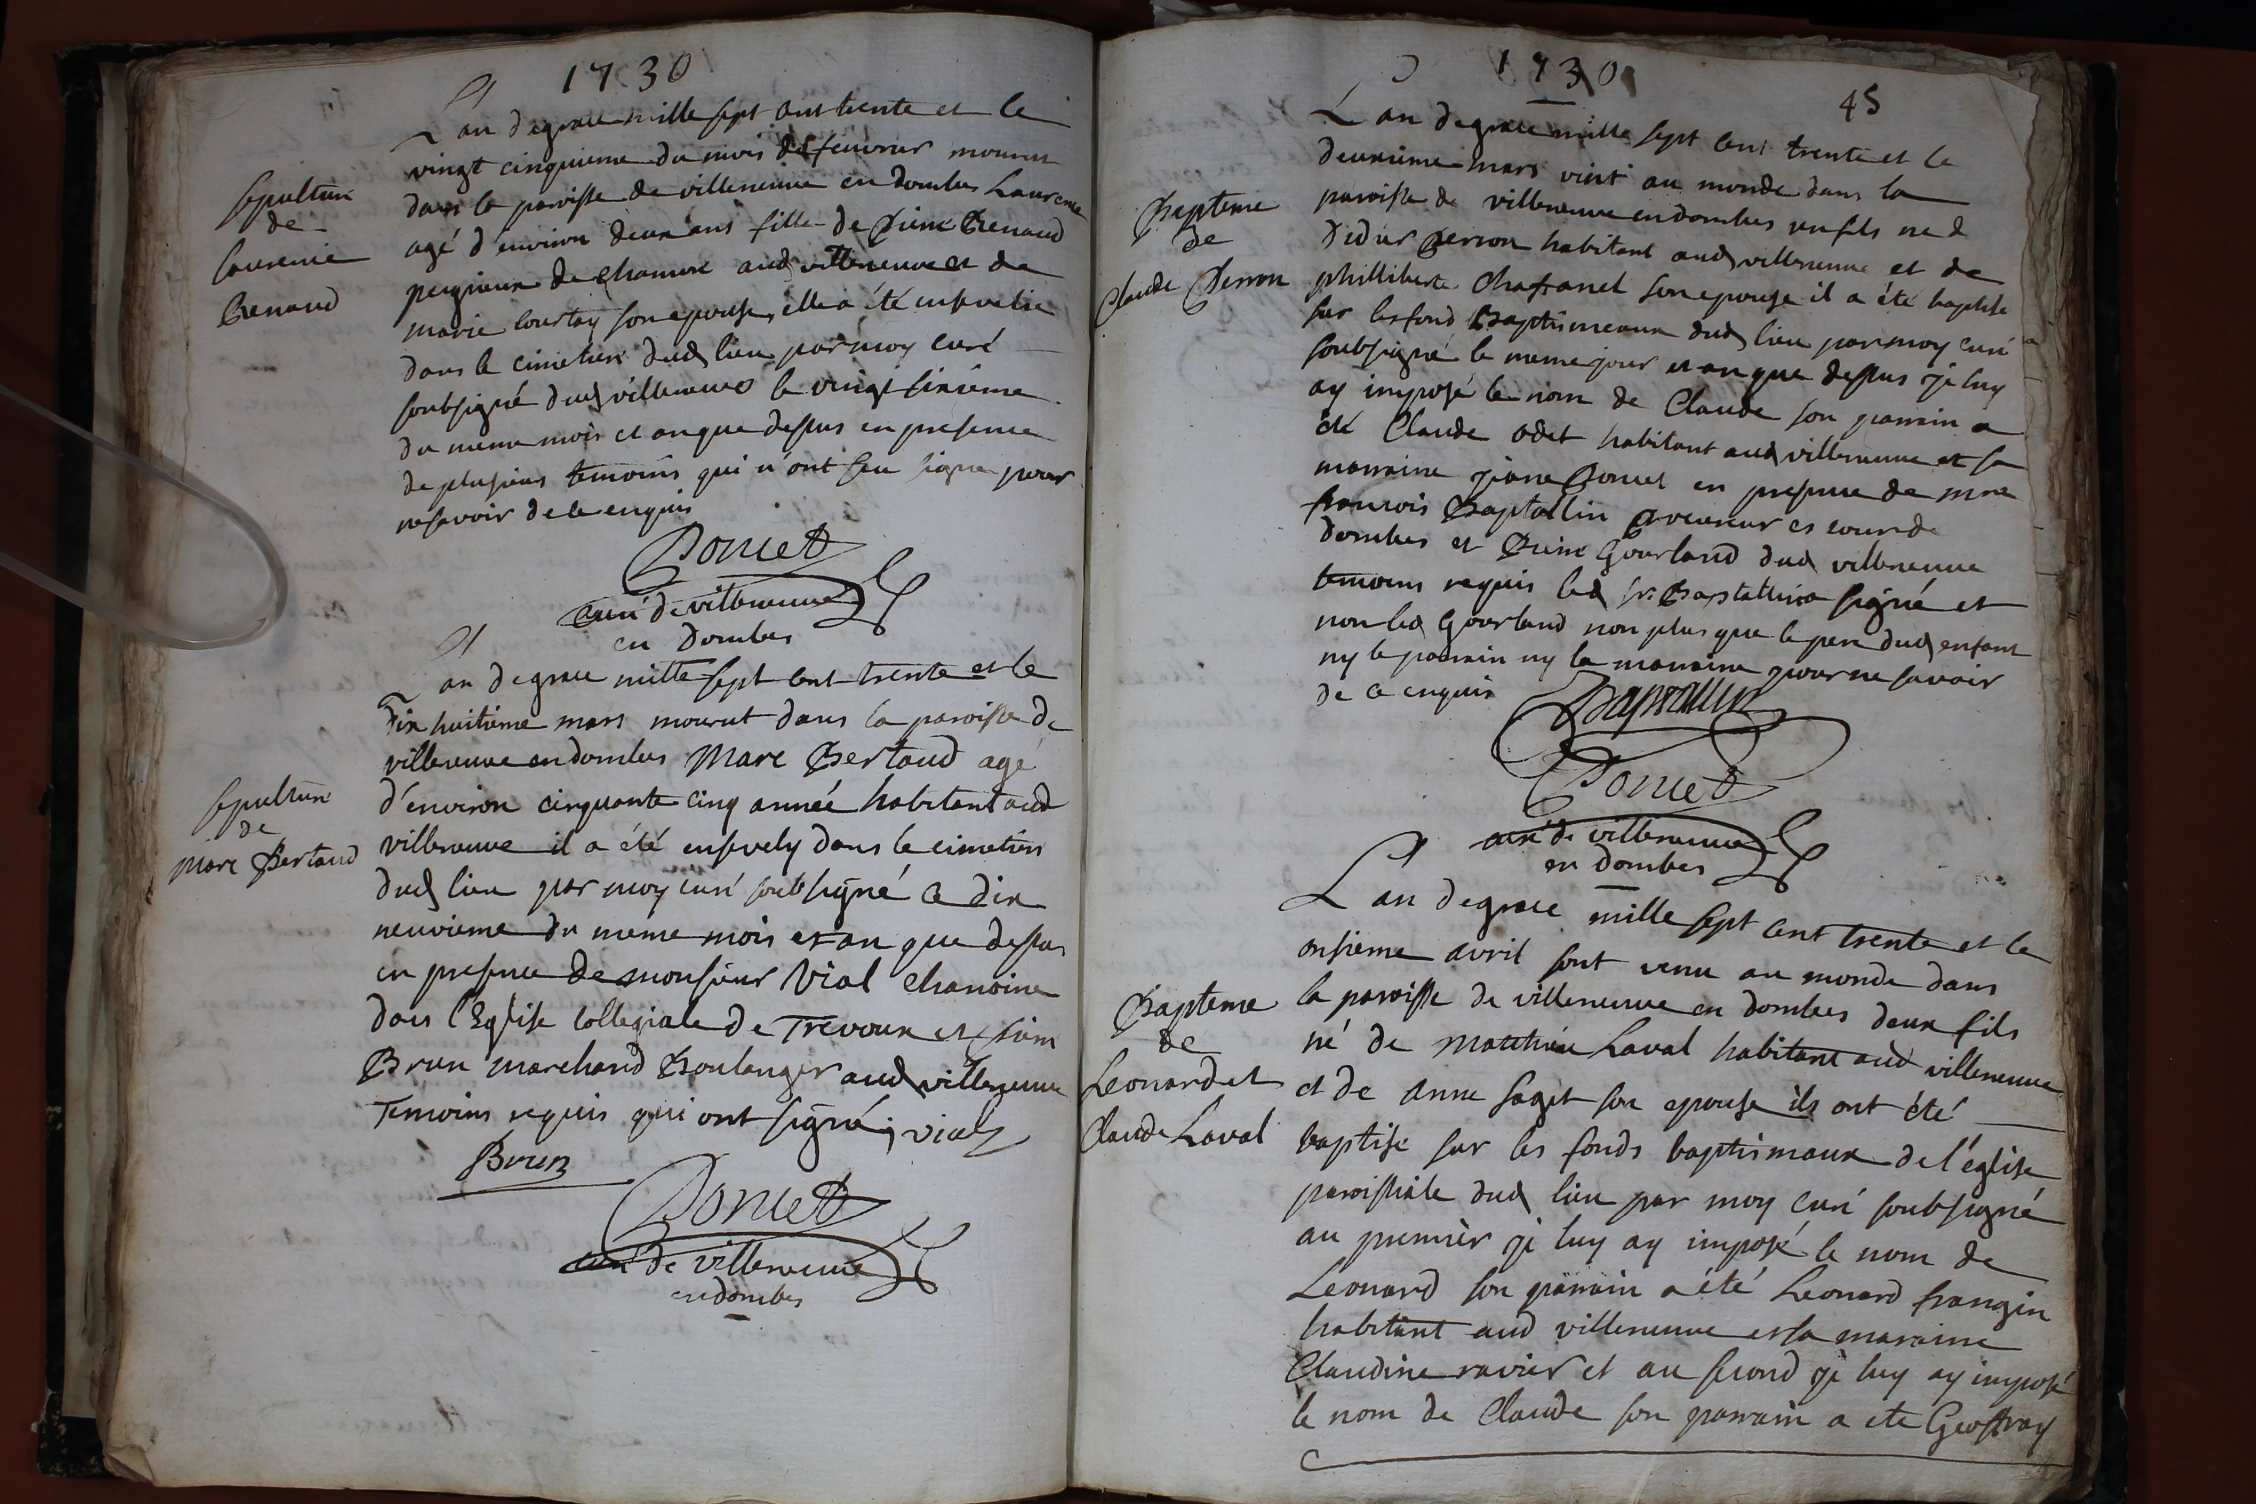 1730
L'an de grace mille sept cent trente et le
vingt cinquieme du mois de feuvrier mourut
dans la paroisse de villeneuve en dombes Laurence
agé d'environ deux ans fille de Renaud
peigneur de chanvre aud villeneuve et de
marie courtay son epouse, elle a été ensevelie
dans le cimetiere dud lieu par moy curé
soubsigné dud villeneuve le vingt sixième
du meme mois et an que dessus en presence
de plusieurs temoins qui n'ont sceu signer pour
ne savoir de ce enquis
Sepulture
de
Laurence
Renaud
Poncet
curé de villeneuve
en Dombes
L'an de grace mille sept cent trente et le
dix huitième mars mourut dans la paroisse de
villeneuve en dombes Marc Bertaud agé
d'environ cinquante cinq année habitant aud
villeneuve il a été ensevely dans le cimetiere
dud lieu par moy curé soubsigné ce dix
neuvieme du meme mois et an que dessus
en presence de monsieur Vial chanoine
dans l'Eglise collegiale de Trevoux et
Brun marchand Boulanger aud villeneuve
Temoins requis qui ont signé, vial
Sepulture
de
Marc Bertaud
Brun
Poncet
curé de villeneuve
en dombes
1730
45
L'an de grace mille sept cent trente et le
deuxième mars vint au monde dans la
paroisse de villeneuve en dombes un fils né d
Didier Perron habitant aud villeneuve et de
phillibert Chafanel son epouse il a été baptise
sur les fond Baptismeaux dud lieu par moy curé
soubsigné le meme jour et an que dessus je luy
ay imposé le nom de Claude son parrain a
été Claude odet habitant aud villeneuve et sa
marraine Poncet en presence de
francois Baptallin procureur es cour de
Dombes et Gourland dud villeneuve
temoins requis led sr Baptallin a signé et
non led Gourland non plus que le pere dud enfant
ny le parrain ny la marraine pour ne savoir
de ce enquis
Bapteme
de
Claude Perron
Baptallin
Poncet
curé de villeneuve
en Dombes
L'an de grace mille sept cent trente et le
onsieme avril sont venu au monde dans
la paroisse de villeneuve en dombes deux fils
né de Matthieu Laval habitant aud villeneuve
et de Anne Saget son epouse ils ont été
baptise sur les fonds baptismaux de l'église
paroissiale dud lieu par moy curé soubsigné
au premier je luy ay imposé le nom de
Leonard son parrain a été Leonard frangin
habitant aud villeneuve et sa maraine
Claudine ravier et au second je luy ay imposé
le nom de Claude son parrain a ete Geoffray
Bapteme
de
Leonard et
Claude Laval